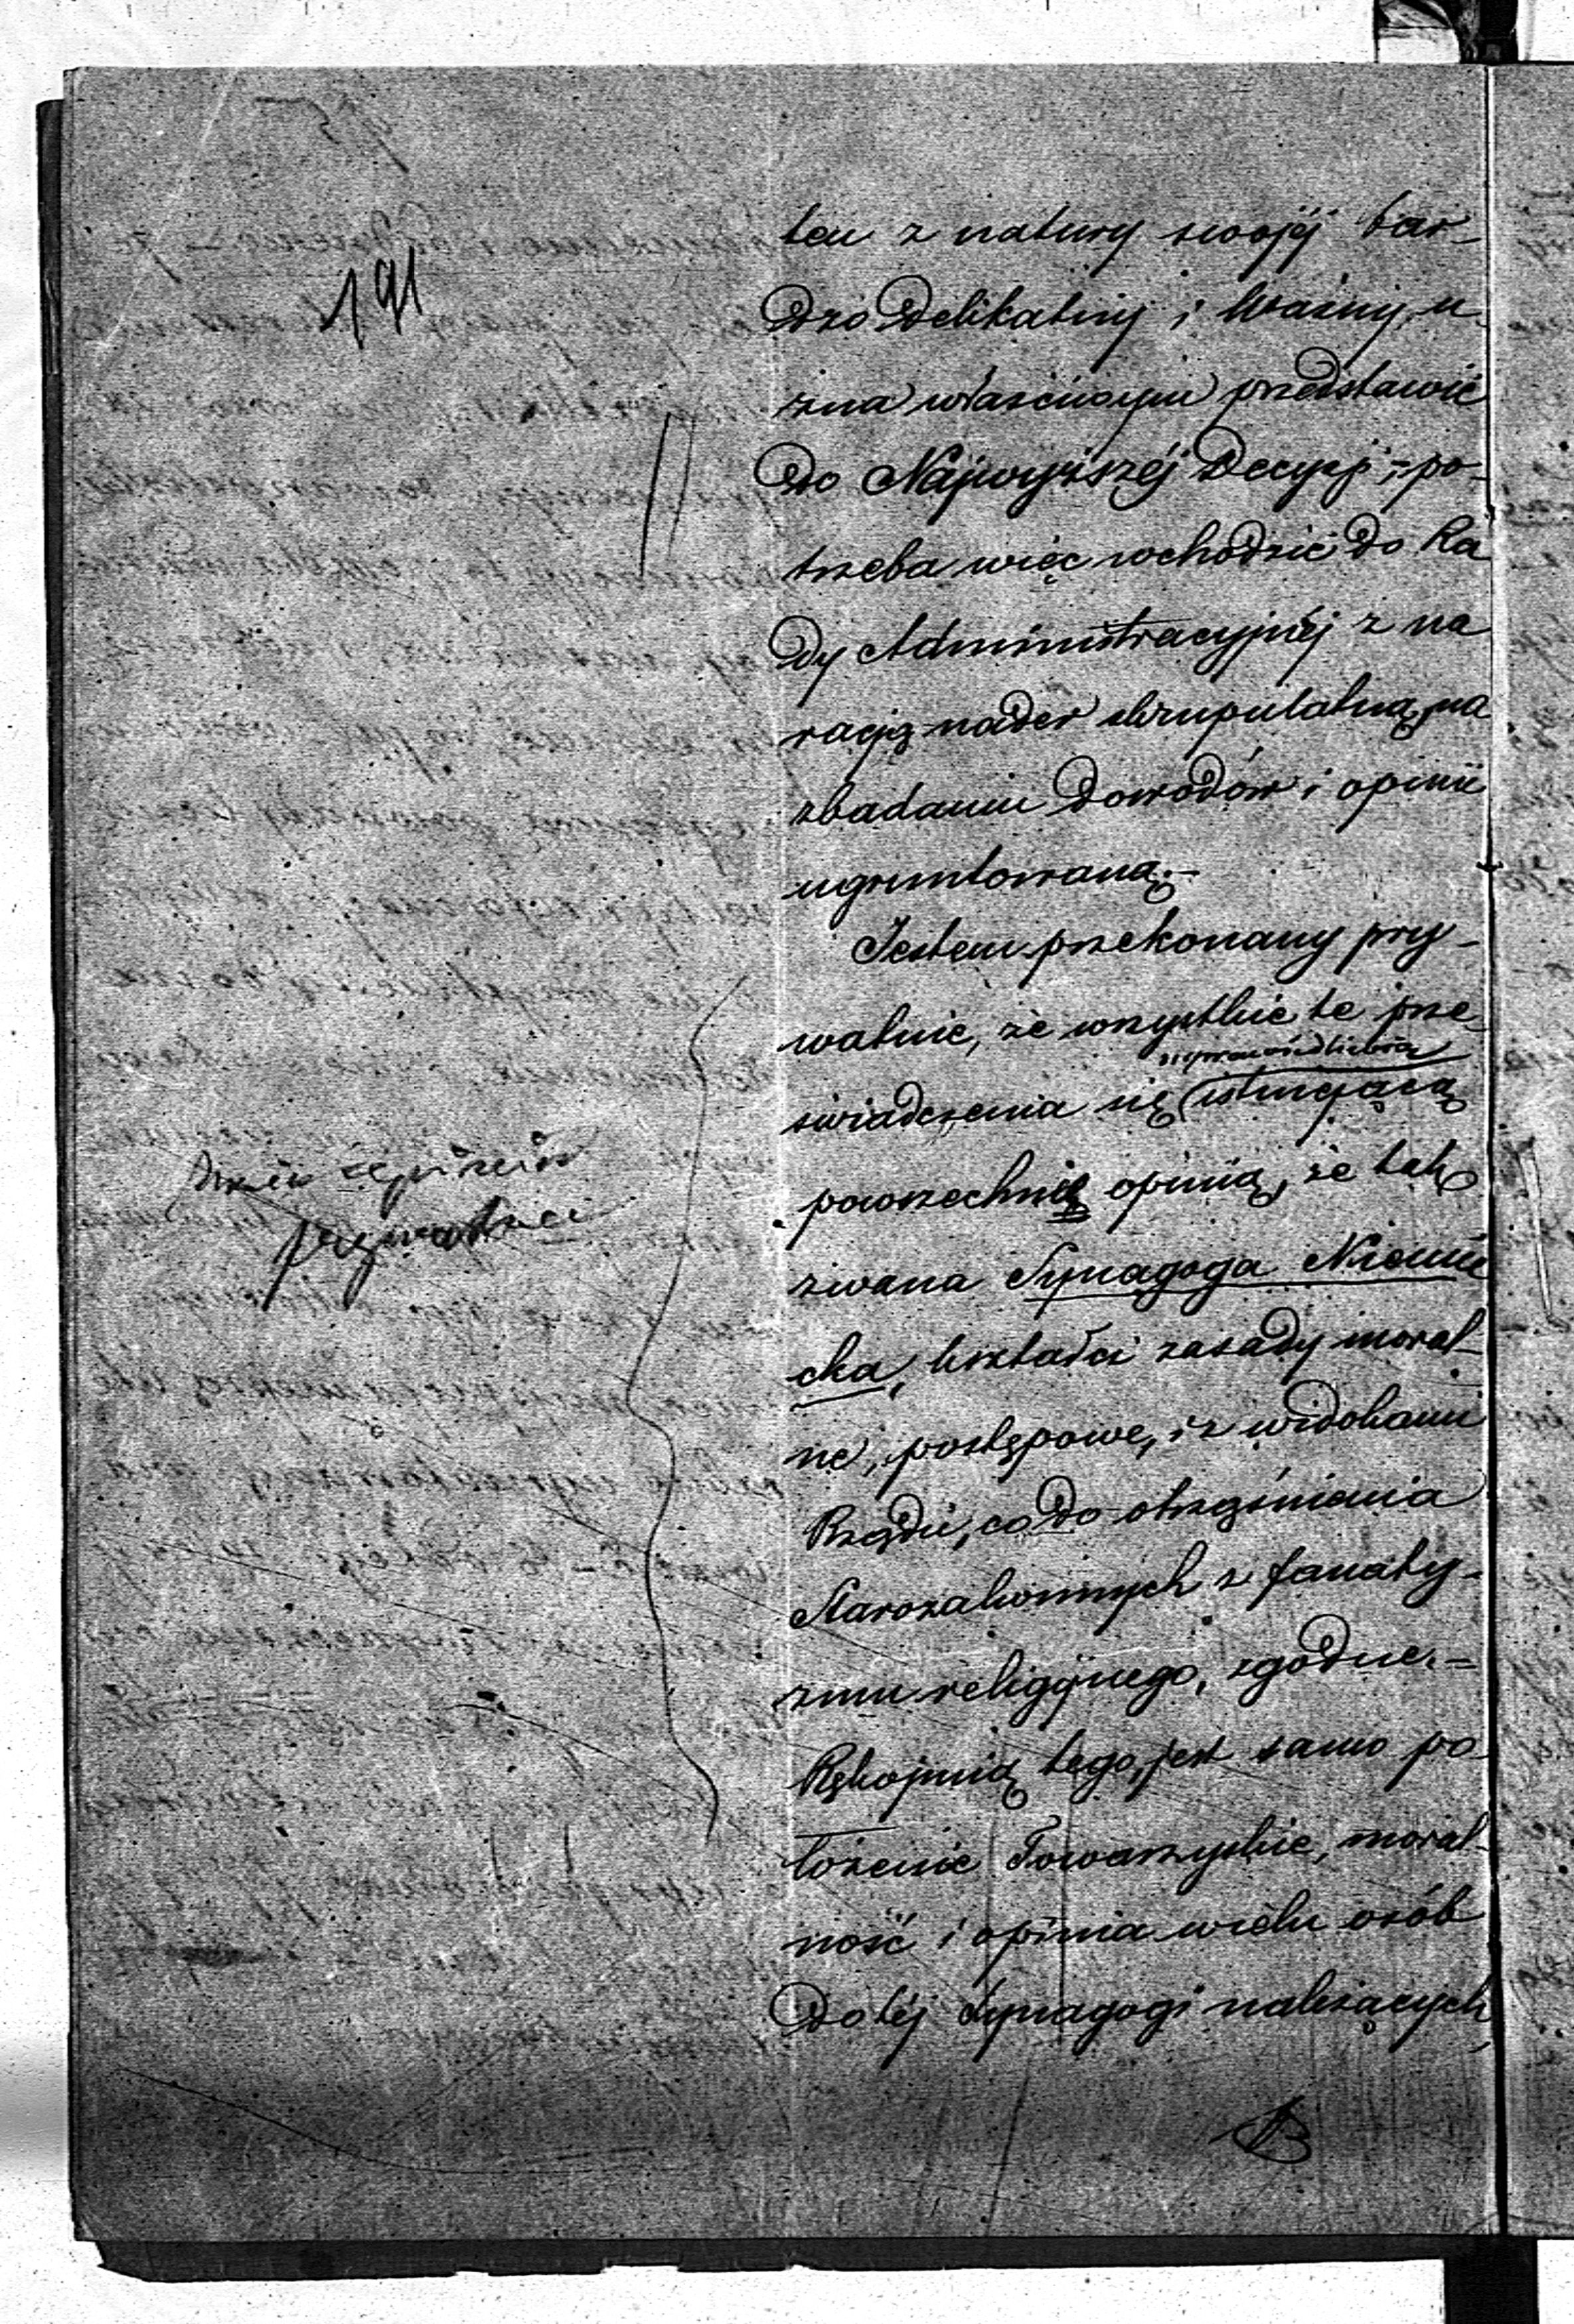 191
ten z natury swojéj bar-
dzo delikatnej i ważny, u-
zna właściwym przedstawić
do Najwyższéj Decyzji; po-
trzeba więc wchodzić do Ra
dy Administracyjnéj z na
racją nader skrupulatną, na
zbadaniu dowodów i opinii
ugruntowaną.-
Jestem przekonany pry-
watnie, że wszystkie te prze
świadczenia się istniejącą
powszechnie opinią, że tak
zwana Synagoga Niemie
cka, kształci zasady moral-
ne, postępowe, i z widokami
Rządu, co do otrząśnienia
Starozakonnych z fanaty-
zmu religijnego, zgodne.-
Rękojmią tego, jest samo po
łożenie Towarzyskie, moral-
ność i opinia wielu osób
do téj Synagogi należących,